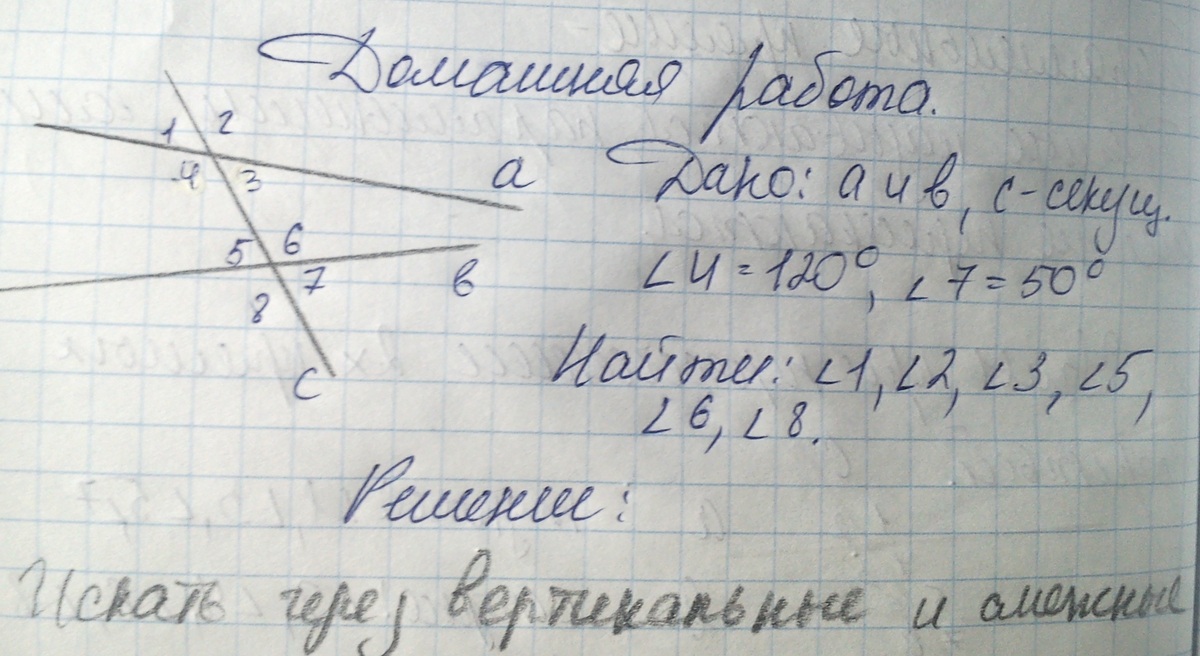 Домашняя работа.
1 2
4 3
а
Дано: а и в, с-секущ.
5 6
8 7
в
∠4 = 120°, ∠7 = 50°
с
Найти: ∠1, ∠2, ∠3, ∠5,
∠6, ∠8.
Решение:
Искать через вертикальные и смежные